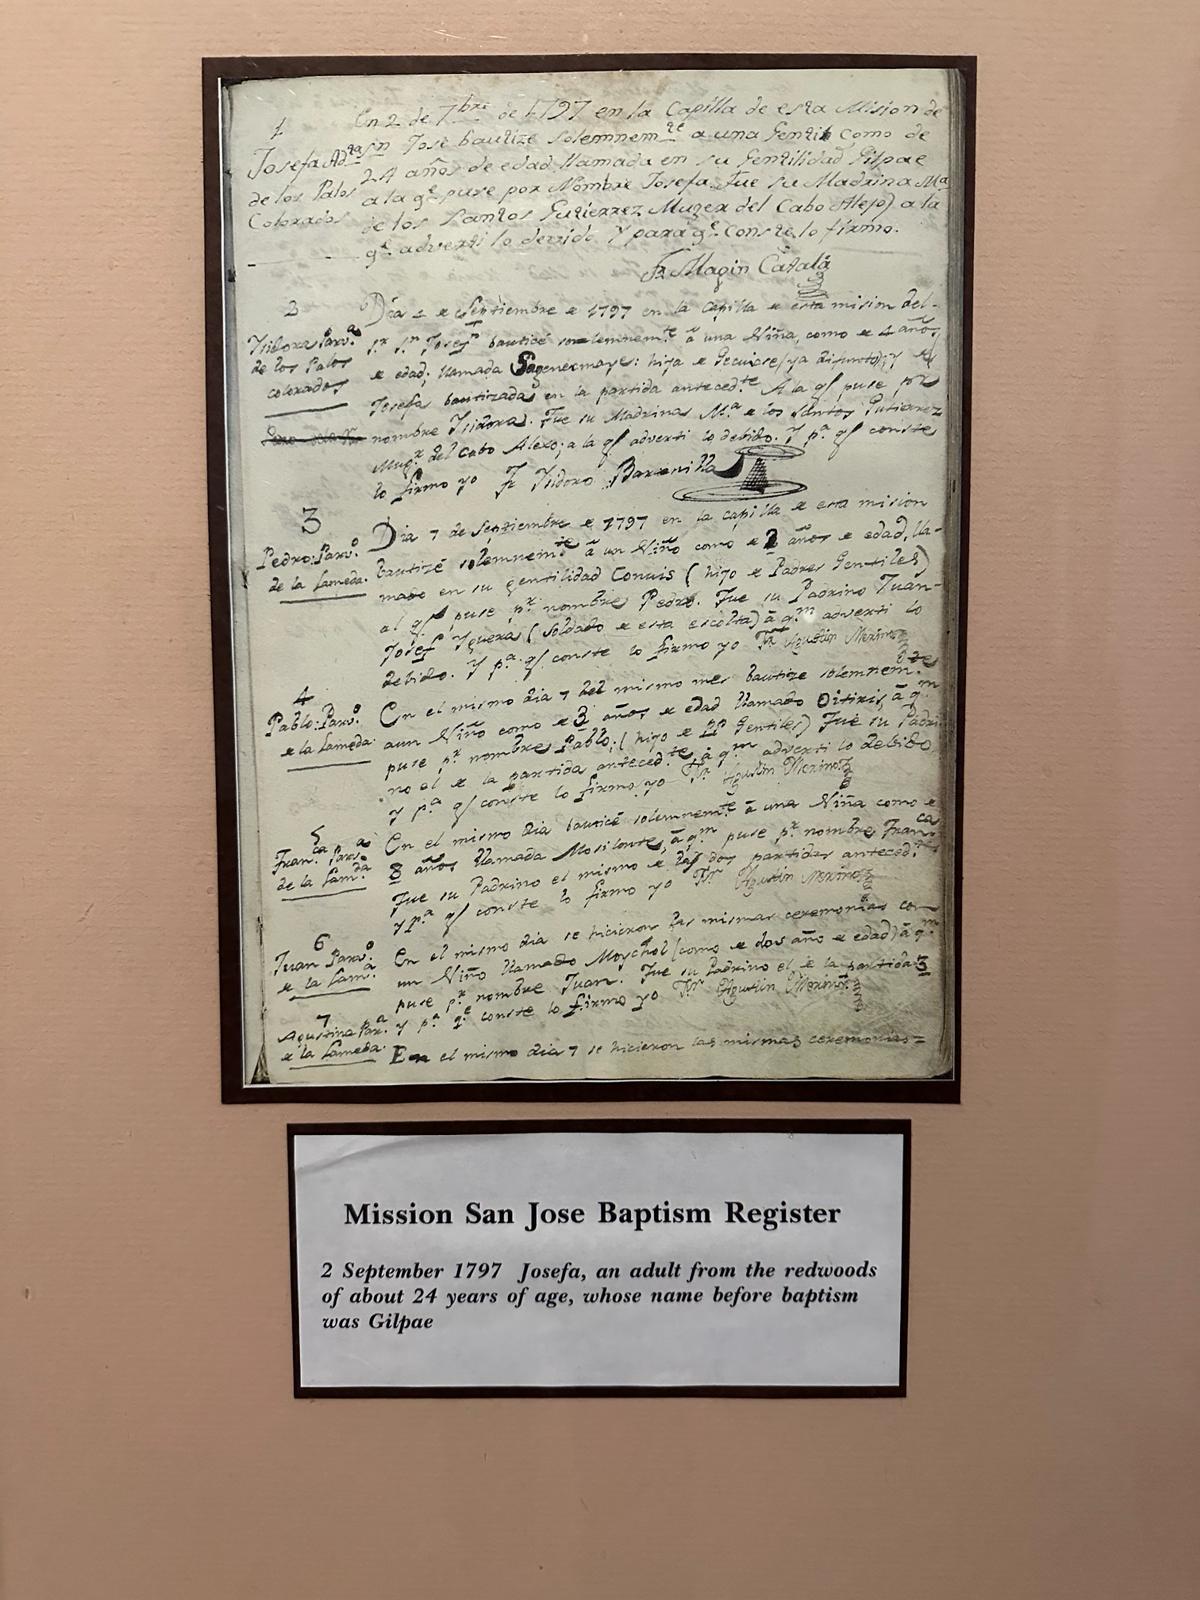 1
Josefa Adta
de los Palos
Colorados
En 2 de 7bre de 1797 en la Capilla de esta Mision de
Sn José bautizé solemnemte a una Gentil como de
24 años de edad llamada en su Gentilidad Gilpae
a la qe puse por Nombre Josefa. Fue su Madrina Ma
de los Santos Gutierrez Muger del Cabo Alejo) a la
qe adverti lo devido. Y para qe Conste lo firmo.
Fr Magin Catalá
2
Isidora Parva
de los Palos
colorados
Dia 2 e Septiembre e 1797 en la Capilla e esta mision del
Sr Sn Josef bauticé solemnemte á una Niña, como e 4 años
e edad; llamada : hija e (ya difunto); y e
Josefa bautizada en la partida antecedte A la qe puse pr
nombre Isidora. Fue su Madrina Ma e los Santos Gutierrez
Mugr del Cabo Alexo; a la qe adverti lo debido. Y pa qe conste
lo firmo yo Fr Isidoro Barcenilla
3
Pedro: Parvo
de la Lameda.
Dia 7 de Septiembre e 1797 en la capilla e esta mision
bautizé solemnemte á un Niño como e 2 años e edad, lla-
mado en su gentilidad Conuis (hijo e Padres Gentiles)
al qe puse pr nombre Pedro. Fue su Padrino Juan
Josef Yguera (Soldado e esta escolta) á qm adverti lo
debido. Y pa qe conste lo firmo yo Fr Agustin Merino
4
Pablo: Parvo
e la Lameda
En el mismo dia 7 del mismo mes bautize solemnemte
aun Niño como e 3 años e edad llamado Oitiris, á qm
puse pr nombre Pablo; (hijo e PP Gentiles) Fué su Padri
no el e la partida antecedte á qm adverti lo debido
y pa qe conste lo firmo yo Fr Agustin Merino
5
Franca Parva
de la Lamda
En el mismo dia bauticé solemnemte á una Niña como e
8 años llamada Mosilonte, á qm puse pr nombre Franca
Fue su Padrino el mismo e las dos partidas antecedtes
Y pa qe conste lo firmo yo Fr Agustin Merino
6
Juan Parvo
e la Lama
En el mismo dia se hicieron las mismas ceremonias con
un Niño llamado Moychol (como e dos años e edad) á qm
puse pr nombre Juan. Fue su Padrino el e la partida 3
Y pa qe conste lo firmo yo Fr Agustin Merino
7
Agustina Para
e la Lameda.
En el mismo dia 7 se hicieron las mismas ceremonias=
Mission San Jose Baptism Register
2 September 1797 Josefa, an adult from the redwoods
of about 24 years of age, whose name before baptism
was Gilpae